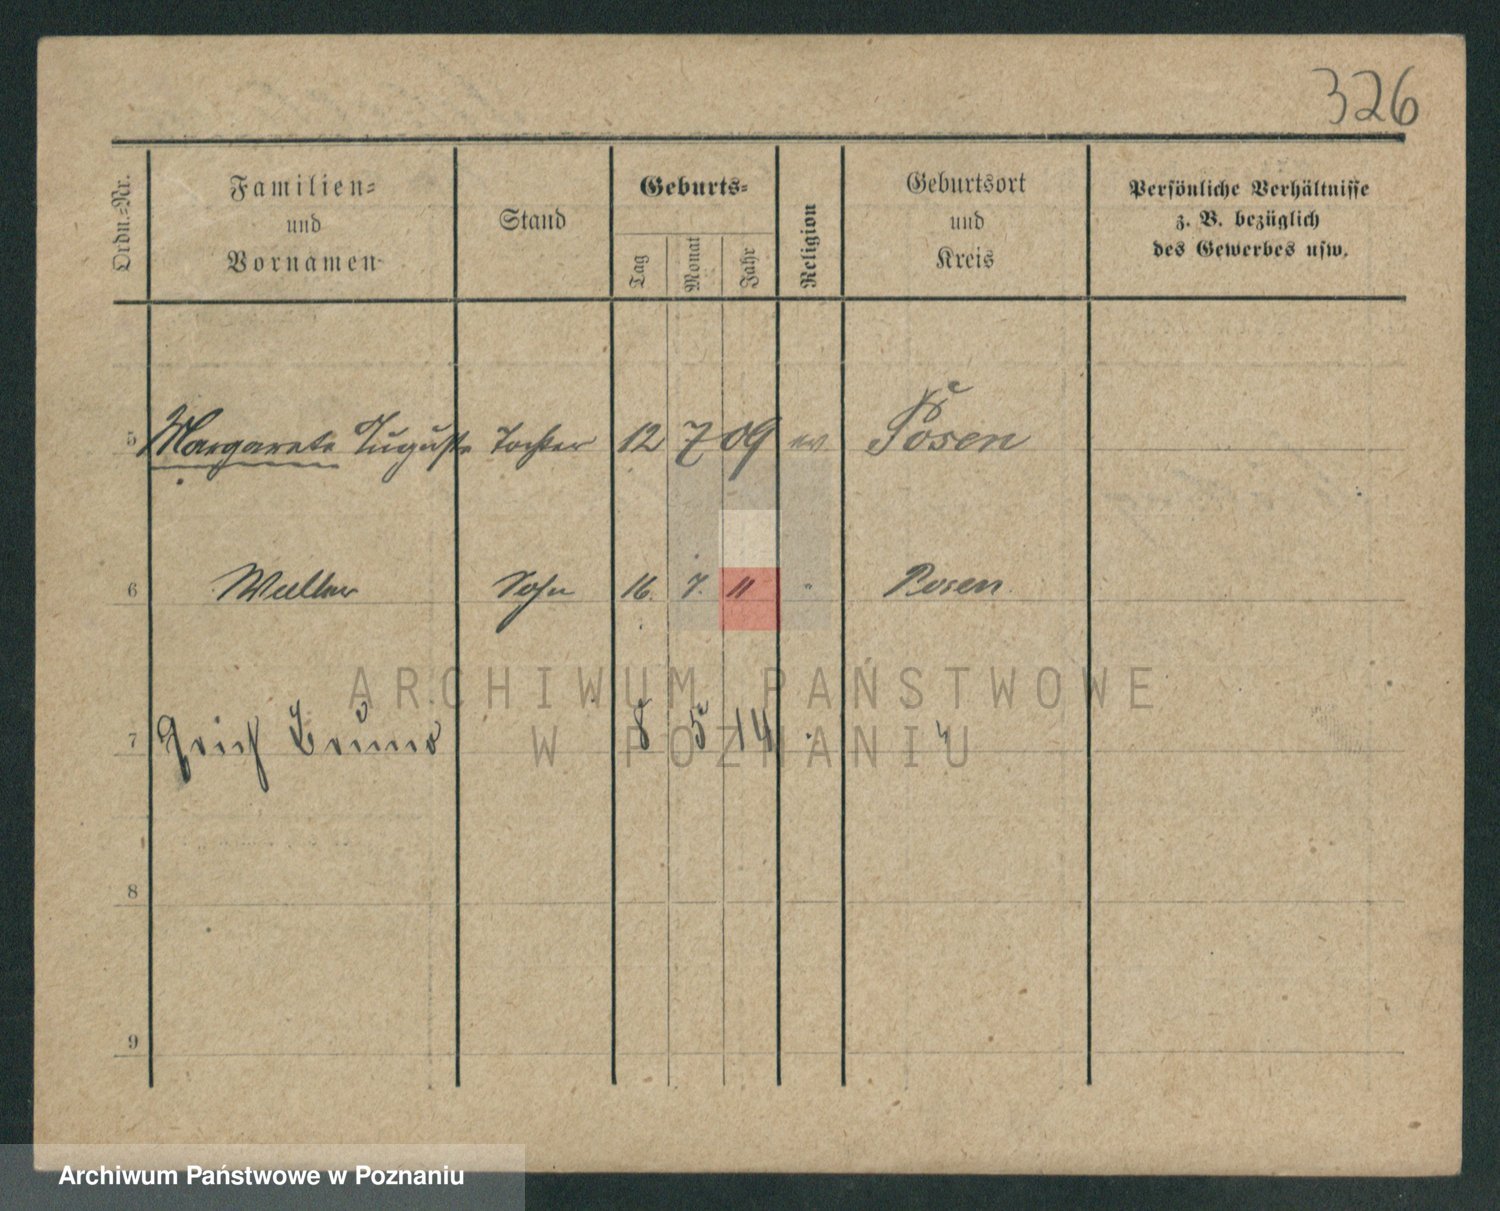 326
Ordn.-Nr.
Familien-
und
Vornamen
Stand
Geburts-
Tag
Monat
Jahr
Religion
Geburtsort
und
Kreis
Persönliche Verhältnisse
z. B. bezüglich
des Gewerbes usw.
5 Margarete Auguste Tochter 12 7 09 ev Posen
6 Walter Sohn 16. 7. 11 " Posen
ARCHIWUM PAŃSTWOWE
W POZNANIU
7 Erich Bruno 8 5 14 " "
8
9
Archiwum Państwowe w Poznaniu